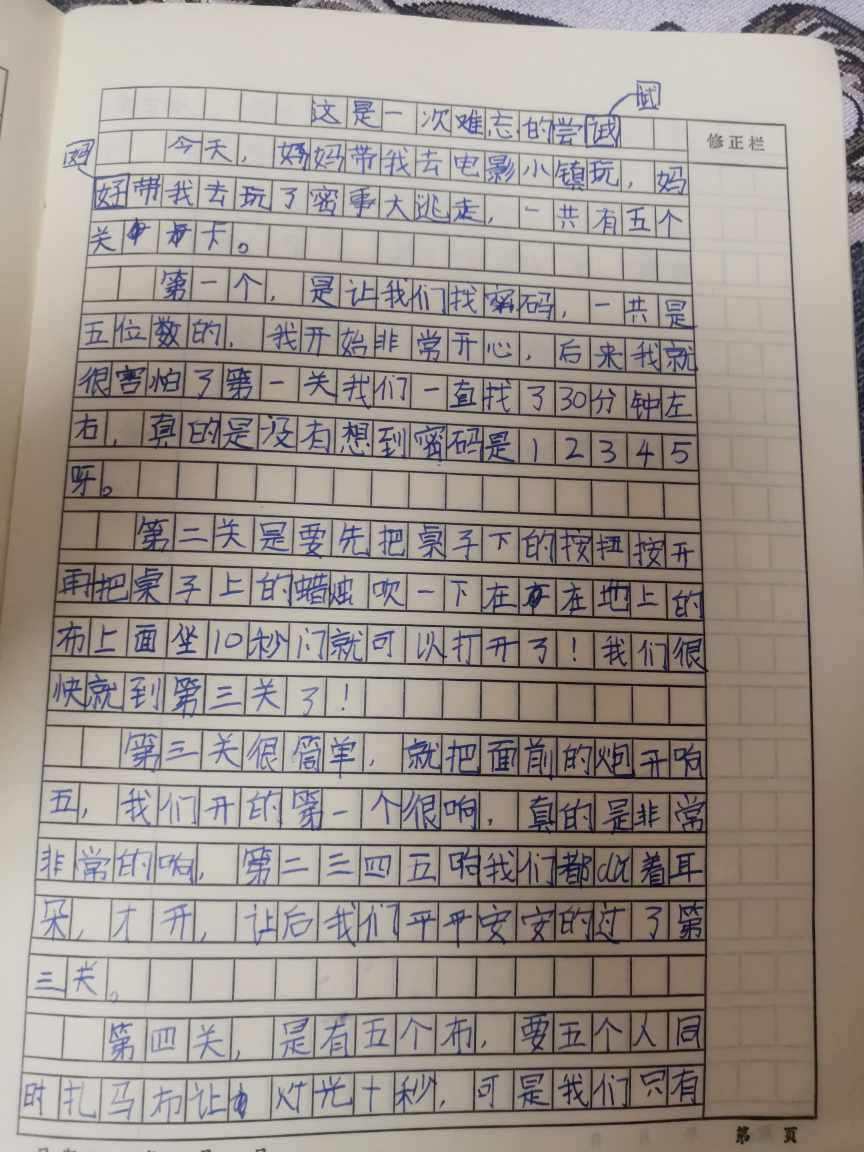 试
这是一次难忘的尝试
修正栏
妈
今天，妈妈带我去电影小镇玩，妈
妈带我去玩了密事大逃走，一共有五个
关卡。
第一个，是让我们找密码，一共是
五位数的，我开始非常开心，后来我就
很害怕了第一关我们一直找了30分钟左
右，真的是没有想到密码是12345
呀。
第二关是要先把桌子下的按扭按开
再把桌子上的蜡烛吹一下在在地上的
布上面坐10秒门就可以打开了！我们很
快就到第三关了！
第三关很简单，就把面前的炮开响
五，我们开的第一个很响，真的是非常
非常的响，第二三四五响我们都du着耳
朵，才开，让后我们平平安安的过了第
三关。
第四关，是有五个布，要五个人同
时扎马布让灯光十秒，可是我们只有
第 页